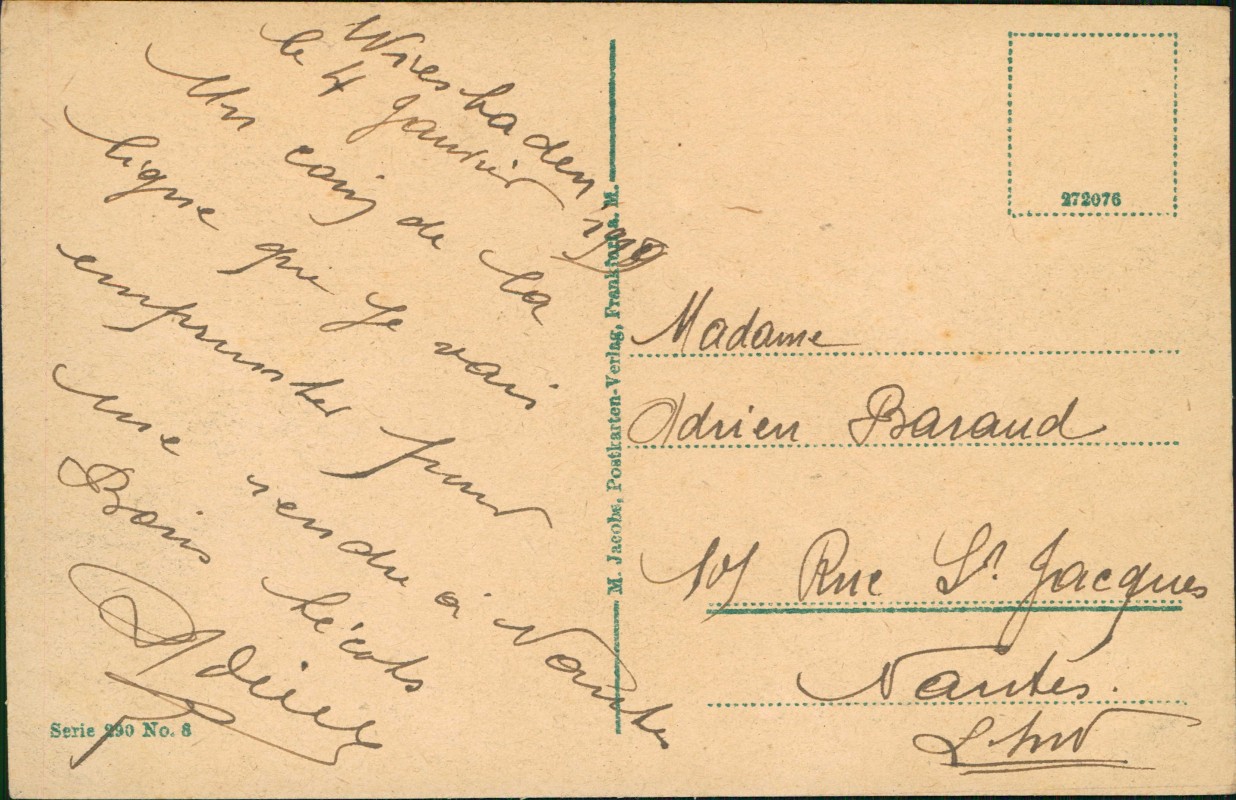 Wiesbaden
le 4 Janvier
Un coin de la
ligne que je vais
emprunter pour
me rendre à Nantes
Bons bécots
Adrien
Serie 290 No. 8
M. Jacobs, Postkarten-Verlag, Frankfurt a. M.
272076
Madame
Adrien Baraud
Rue St. Jacques
Nantes.